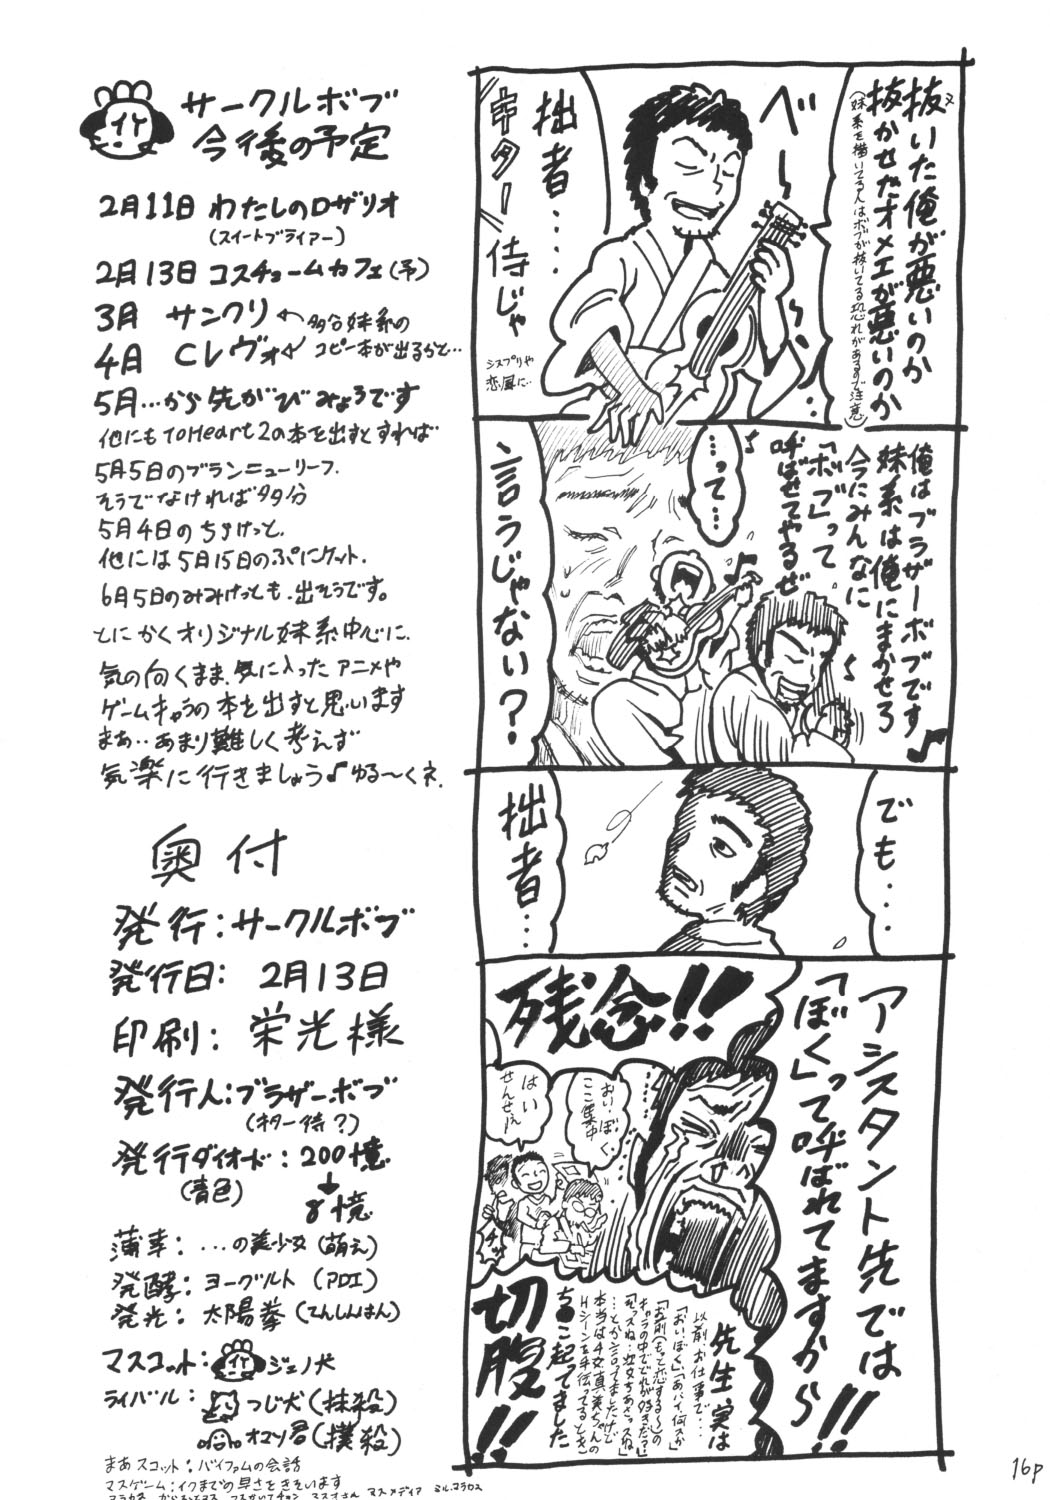 サークルボブ
今後の予定
2月11日 わたしのロザリオ
(スイートブライアー)
2月13日 コスチュームカフェ(予)
3月 サンクリ ← 多分妹系の
4月 Cレヴォ コピー本が出るらと…
シスプリや
恋風に…
5月…から先がびみょうです
他にも ToHeart2の本を出すとすれば
5月5日のブランニューリーフ.
そうでなければ多分
5月4日のちょけっと.
他には5月15日のぷにケット.
6月5日のみみけっとも.出そうです。
とにかくオリジナル妹系中心に.
気の向くまま.気に入ったアニメや
ゲームキャラの本を出すと思います
まあ‥あまり難しく考えず
気楽に行きましょう♪ゆる〜くネ.
奥付
発行:サークルボブ
発行日: 2月13日
印刷: 栄光様
発行人:ブラザーボブ
(ギター侍?)
発行ダイオード:200憶
(青色)
8憶
薄幸: …の美少女(萌え)
発酵: ヨーグルト (PDI)
発光: 太陽拳(てんしんはん)
マスコット: ジェノ犬
ライバル: つじ犬(抹殺)
オマソ君(撲殺)
まあスコット:バイファムの会話
マスゲーム:イクまでの早さをきそいます
抜いた俺が悪いのか
抜かせたオメエが悪いのか
(妹系を描いてる人はボブが抜いてる恐れがあるので注意)
べ〜ン‥
拙者‥‥
ギター侍じゃ
俺はブラザーボブです♪
妹系は俺にまかせろ
今にみんなに
「ボブ」って
呼ばせてやるぜ
…って…
言うじゃない?
でも…
拙者…
アシスタント先では
「ぼく」って呼ばれてますから!!
残念!!
おい、ぼく、
ここ集中
はい
せんせぇ
先生、実は
以前お仕事で…
「おい、ぼく」「あバイ、何スか」
キャラの中でどれが好きだっ?」
…とか言ってましたけど
本当は4女、真美ちゃんの
Hシーンを手伝ってるとき
ち●こ起ってました
切腹!!
16p